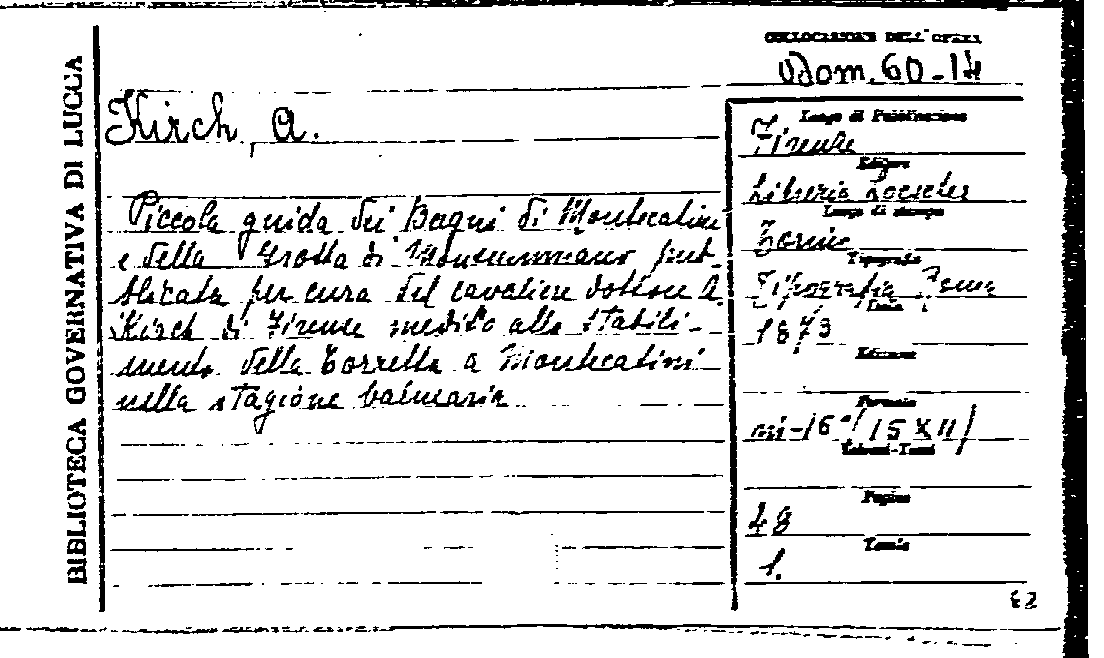 BIBLIOTECA GOVERNATIVA DI LUCCA
COLLOCAZIONE DELL'OPERA
Dom. 60-14
Kirch, A.
Piccola guida dei Bagni di Montecatini
e della Grotta di Monsummano pub-
blicata per cura del cavaliere dottore A.
Kirch di Firenze medico allo stabili-
mento della Torretta a Montecatini
nella stagione balnearia
Luogo di Pubblicazione
Firenze
Editore
Libreria Loescher
Luogo di stampa
Torino
Tipografia
Tipografia
Data
1873
Edizione
Formato
in-16°/15X11/
Volumi-Tomi
Pagine
48
Tavole
1.